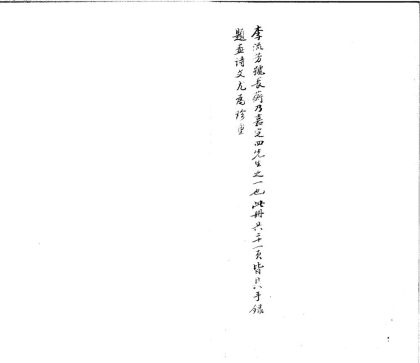 李流芳號長蘅乃嘉定四先生之一也此冊共二十一頁皆其手錄
題畫詩文尤為珍重